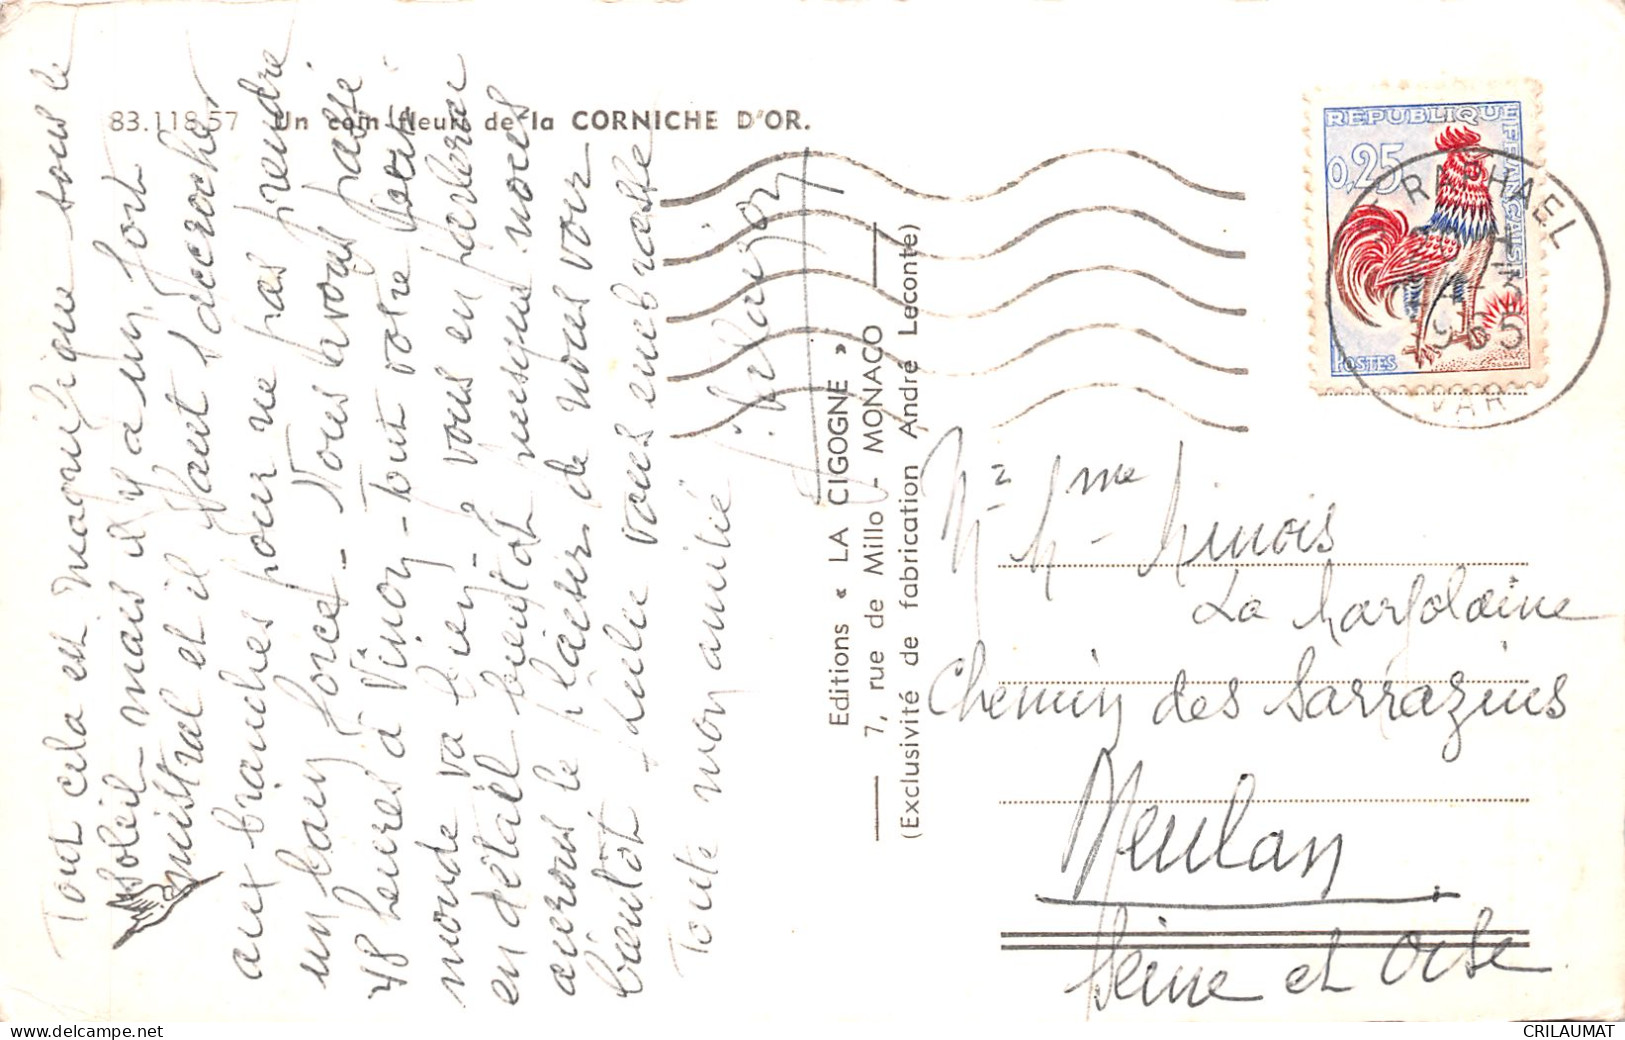 83.118.57 Un coin fleuri de la CORNICHE D'OR.
Tout cela est magnifique sous le
soleil mais il y a un fort
mistral et il faut s'accrocher
aux branches pour ne pas prendre
un bain forcé - Nous avons passé
48 heures à Vinon - Tout votre petit
monde va bien - vous en parlerai
en détail bientôt puisque nous
aurons le plaisir de nous voir
bientôt Julie vous embrasse
Toute mon amitié
Editions « LA CIGOGNE »
7, rue de Millo - MONACO
(Exclusivité de fabrication André Leconte)
REPUBLIQUE FRANÇAISE
0,25
POSTES
RAPHAEL
VAR
Mr Mme Minois
La Marjolaine
Chemin des Sarrazins
Meulan
Seine et Oise
CRILAUMAT